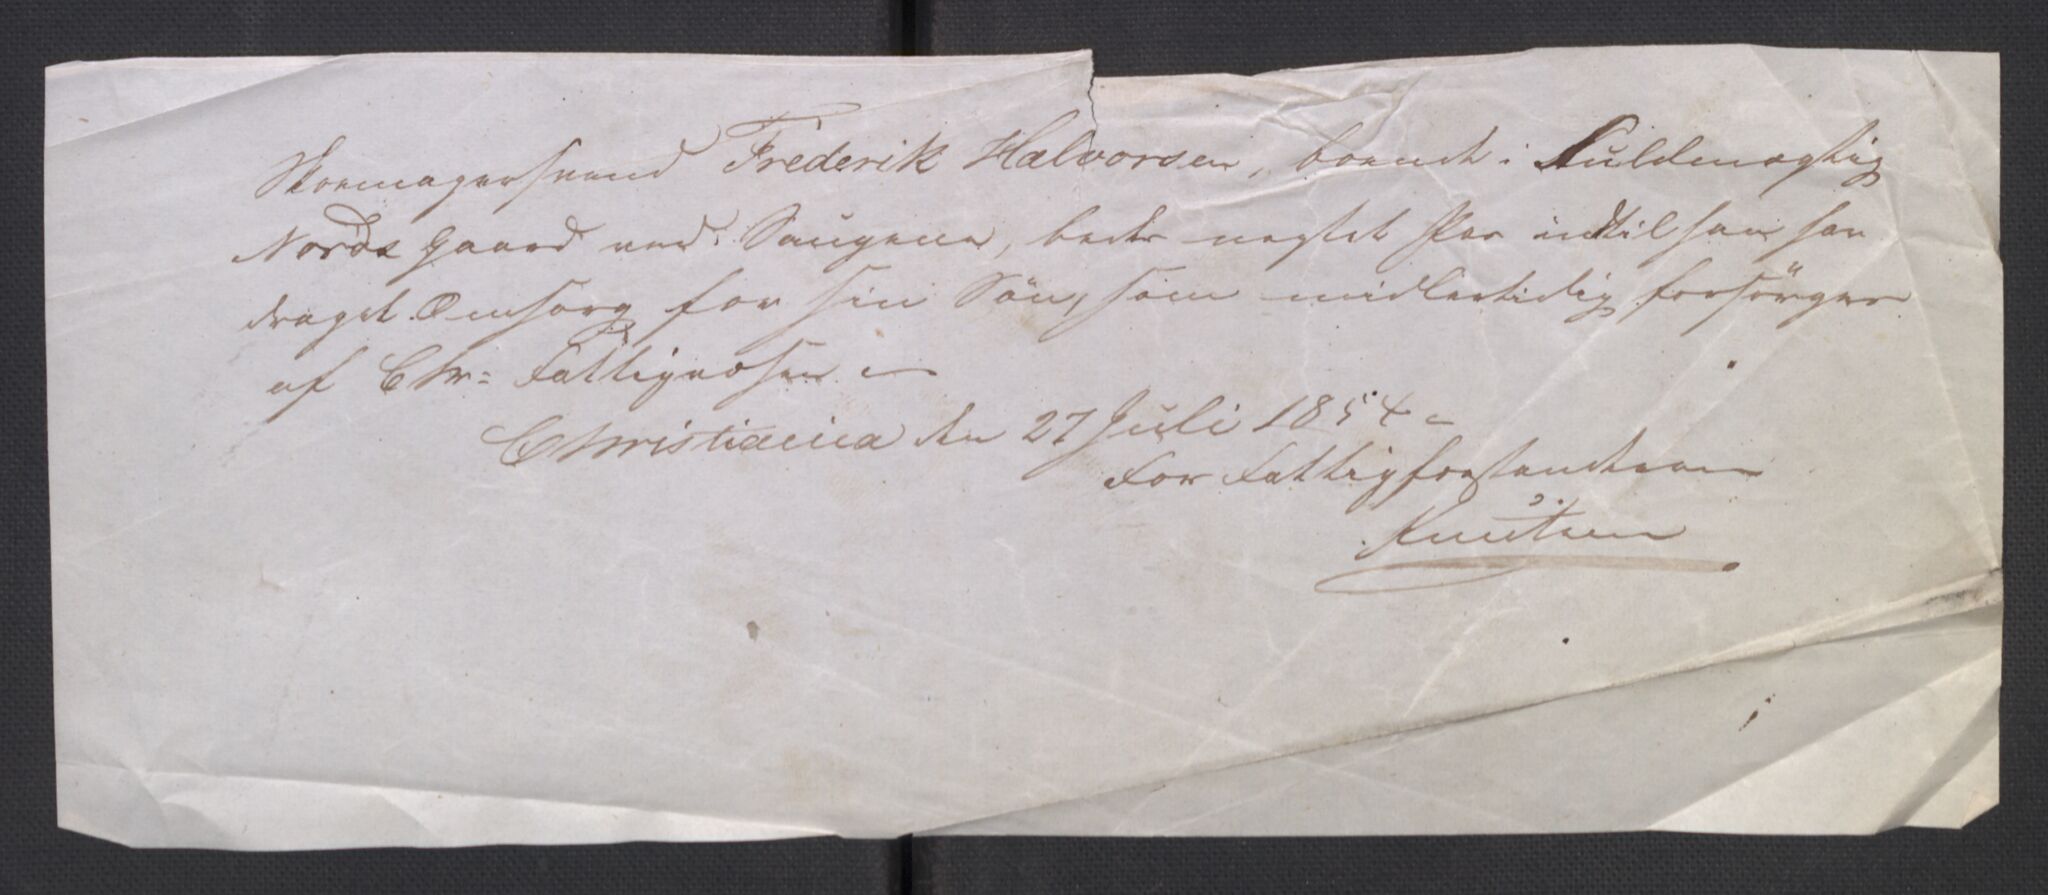 Skomagersvend Frederik Halvorsen, boende i Fuldmægtig
Nords Gaard ved Saugene, bedes negtet Pas indtil han har
draget Omsorg for sin Sön, som midlertidig forsörges
af Chr: Fattigvæsen.
Christiania den 27 Juli 1854
For Fattigforstanderen
Knutsen